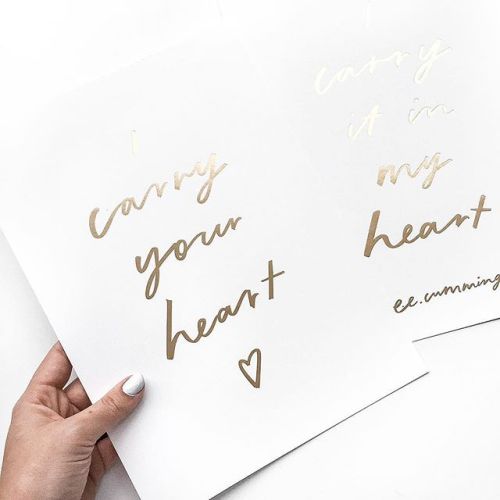 I
carry
your
heart
carry
it in
my
heart
e.e. cumming